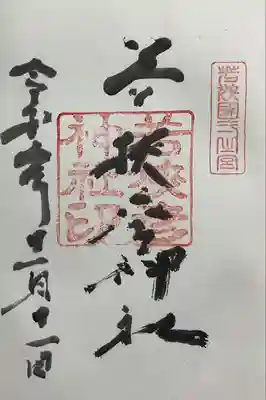 若狭國一之宮
若狭彦神社
若狭彦神社印
令和六年十一月十一日